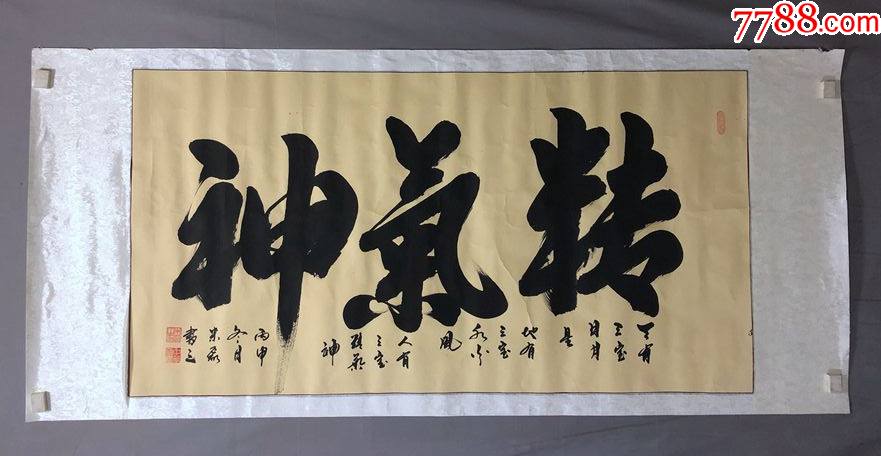 7788.com
精氣神
天有
三宝
日月
星
地有
三宝
水火
風
人有
三宝
精氣
神
丙申
冬月
書之